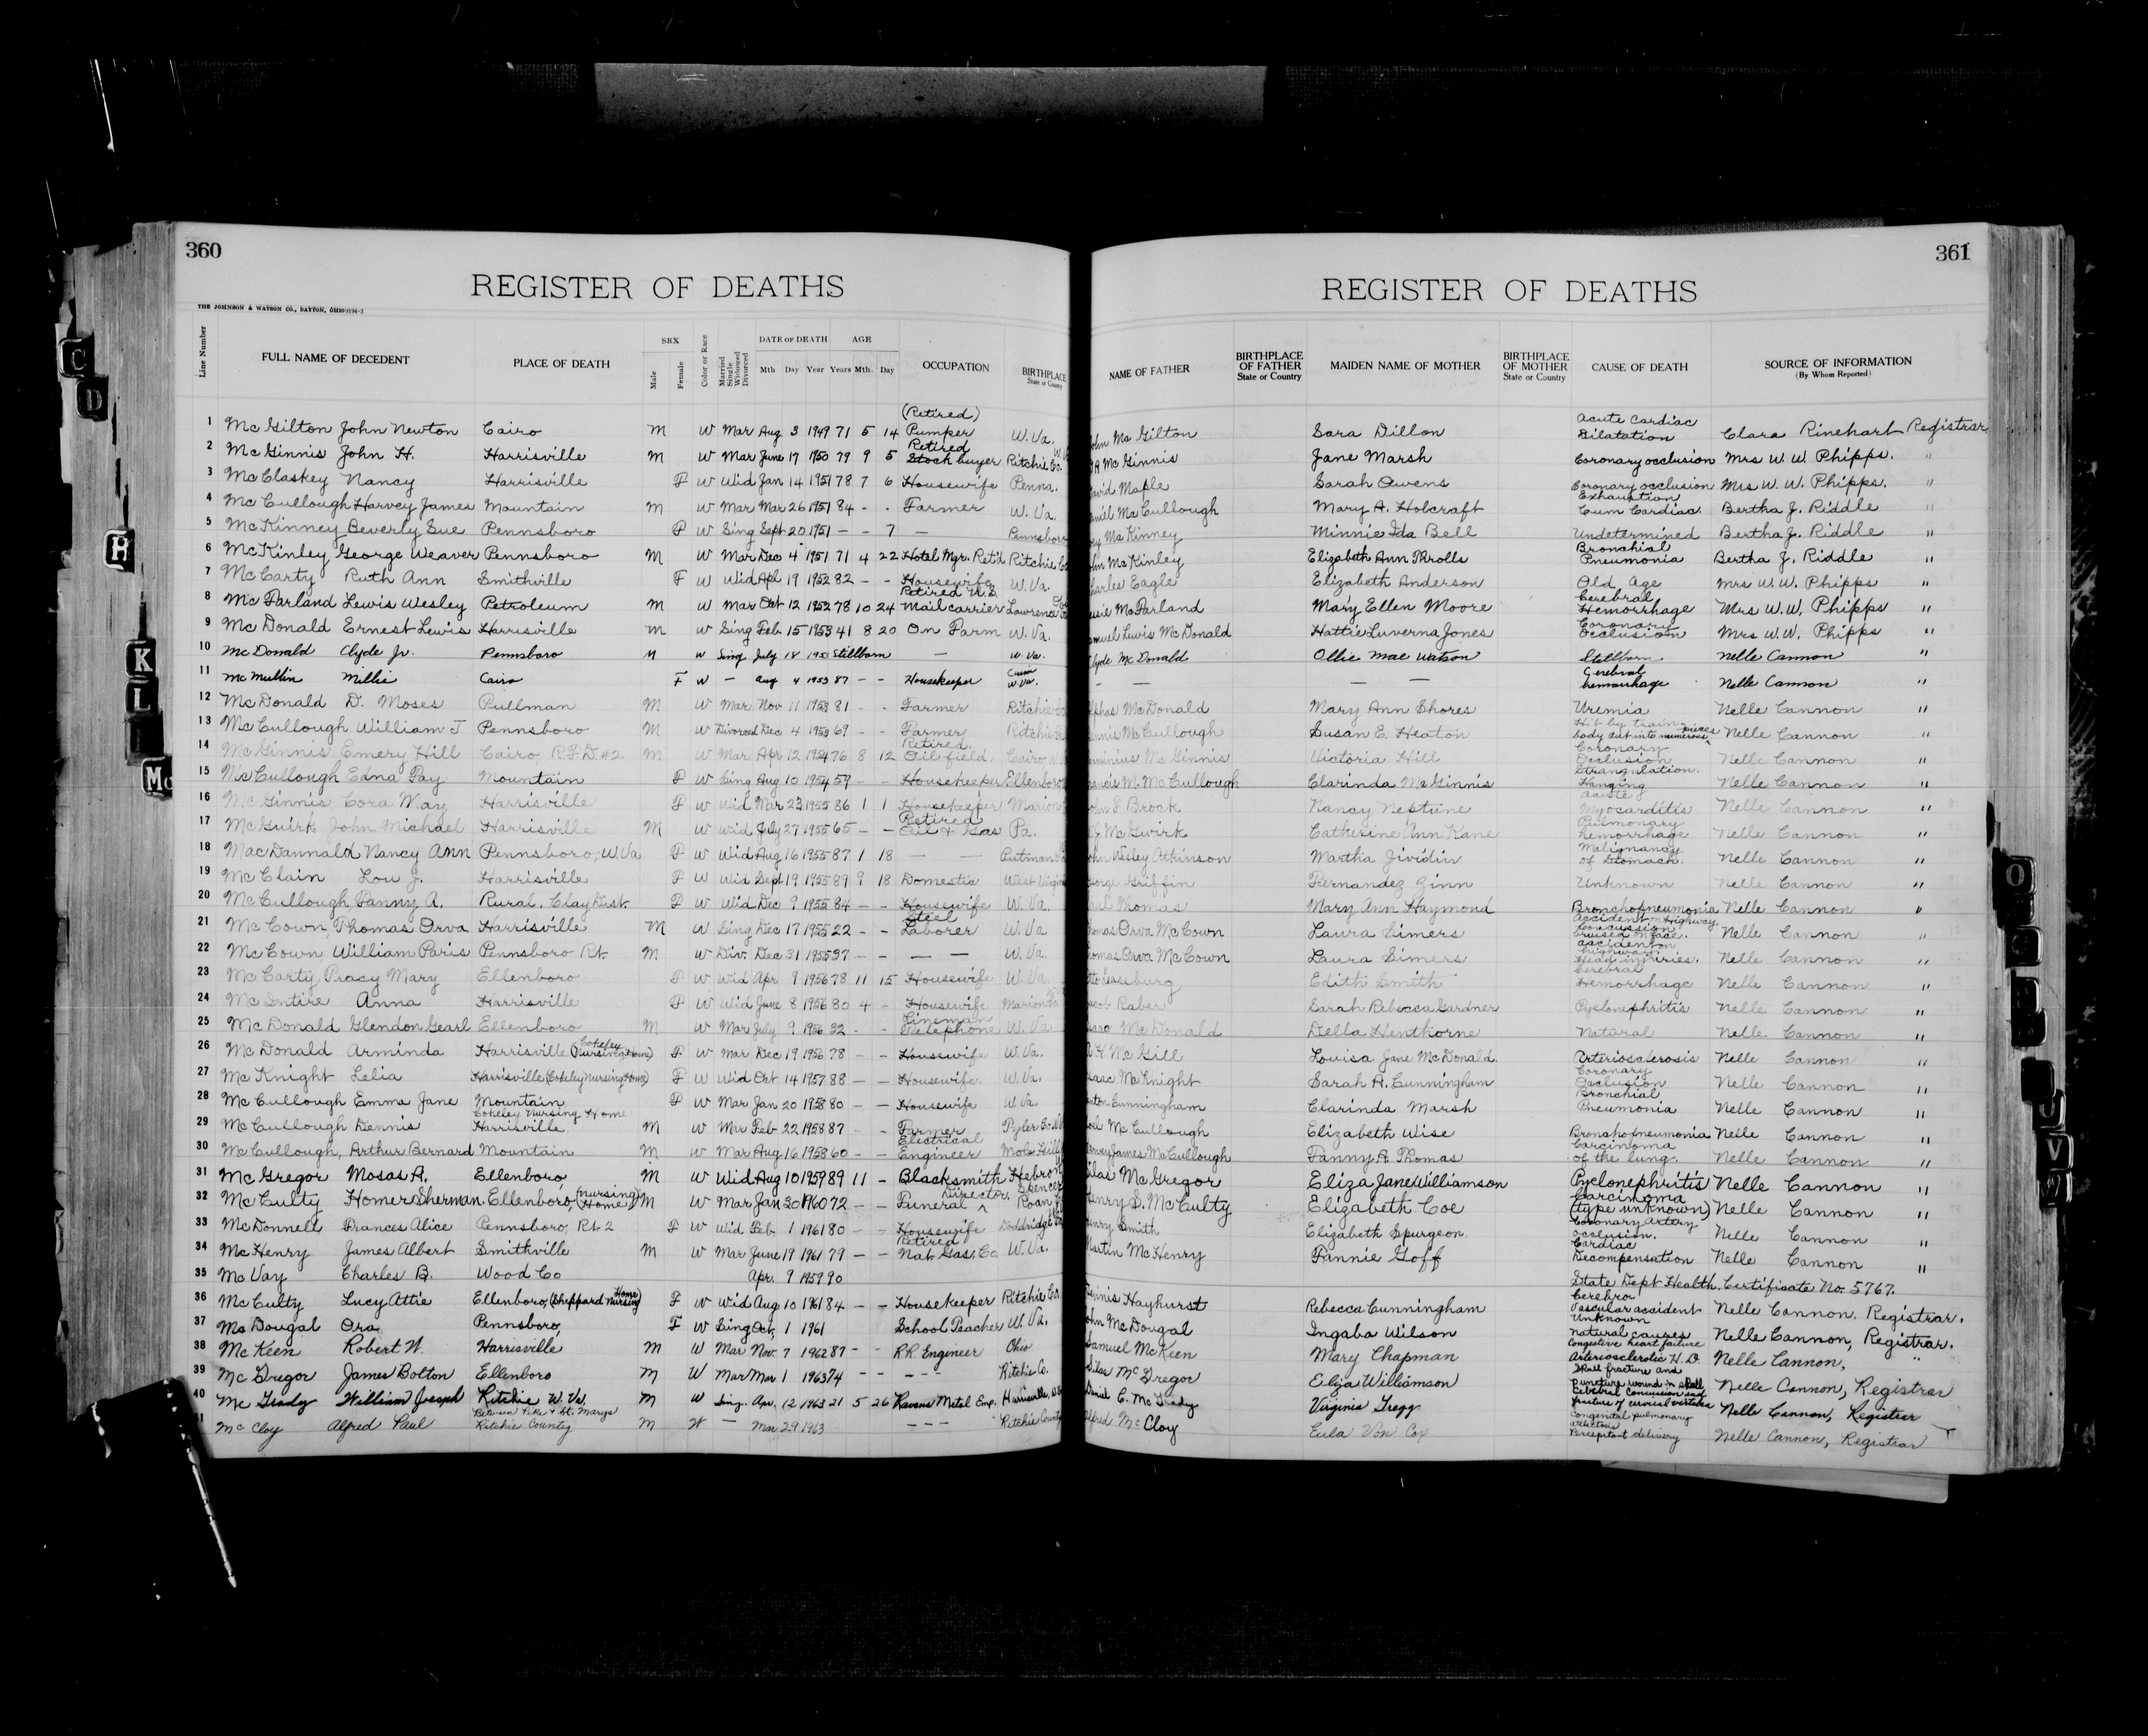 360
REGISTER OF DEATHS
THE JOHNSON & WATSON CO., DAYTON, OHIO
Line Number FULL NAME OF DECEDENT PLACE OF DEATH SEX Male Female Color or Race Married Single Widowed Divorced DATE OF DEATH Mth Day Year AGE Years Mth. Day OCCUPATION BIRTHPLACE State or County
1 McGilton John Newton Cairo M W Mar Aug 3 1949 71 5 14 (Retired) Pumper W. Va.
2 McGinnis John H. Harrisville M W Mar June 17 1950 79 9 5 Retired Stock buyer Ritchie Co.
3 McClaskey Nancy Harrisville F W Wid Jan 14 1951 78 7 6 Housewife Penna.
4 McCullough Harvey James Mountain M W Mar Mar 26 1951 84 - - Farmer W. Va.
5 McKinney Beverly Sue Pennsboro F W Sing Sept 20 1951 - - 7 - Pennsboro
6 McKinley George Weaver Pennsboro M W Mar Dec 4 1951 71 4 22 Hotel Mgr. Ret'd Ritchie Co
7 McCarty Ruth Ann Smithville F W Wid Apl 19 1952 82 - - Housewife W. Va.
8 McFarland Lewis Wesley Petroleum M W Mar Oct 12 1952 78 10 24 Retired Mail carrier Lawrence
9 McDonald Ernest Lewis Harrisville M W Sing Feb 15 1953 41 8 20 On Farm W. Va.
10 McDonald Clyde Jr. Pennsboro M W Sing July 18 1953 Stillborn - W Va.
11 McMullin Millie Cairo F W - Aug 4 1953 87 - - Housekeeper Cairo W. Va.
12 McDonald D. Moses Pullman M W Mar Nov 11 1953 81 - - Farmer Ritchie
13 McCullough William J Pennsboro M W Divorced Dec 4 1953 69 - - Farmer Ritchie
14 McGinnis Emery Hill Cairo, R.F.D. #2 M W Mar Apr 12 1954 76 8 12 Retired Oil field. Cairo
15 McCullough Edna Fay Mountain F W Sing Aug 10 1954 59 - - Housekeeper Ellenboro
16 McGinnis, Cora May Harrisville F W Wid Mar 23 1955 86 1 1 Housekeeper Marion
17 McGuirk John Michael Harrisville M W Wid July 27 1955 65 - - Retired Oil & Gas Pa.
18 MacDannald Nancy Ann Pennsboro, W. Va F W Wid Aug 16 1955 87 1 18 - - Putnam
19 McClain Lou J. Harrisville F W Wid Sept 19 1955 89 9 18 Domestic West Virginia
20 McCullough Fanny A. Rural, Clay Dist. F W Wid Dec 9 1955 84 - - Housewife W. Va.
21 McCown, Thomas Orva Harrisville M W Sing Dec 17 1955 22 - - Steel Laborer W. Va
22 McCown William Paris Pennsboro Rt. M W Div. Dec 31 1955 37 - - - - W. Va.
23 McCarty Tracy Mary Ellenboro F W Wid Apr 9 1956 78 11 15 Housewife W. Va.
24 McIntire Anna Harrisville F W Wid June 8 1956 80 4 - Housewife Marion
25 McDonald Glendon Gearl Ellenboro M W Mar July 9 1956 32 - - Lineman Telephone W. Va.
26 McDonald Arminda Harrisville (Cokeley Nursing Home) F W Mar Dec 19 1956 78 - - Housewife W. Va.
27 McKnight Lelia Harrisville (Cokeley Nursing Home) F W Wid Oct 14 1957 88 - - Housewife W. Va.
28 McCullough Emma Jane Mountain F W Mar Jan 20 1958 80 - - Housewife W. Va.
29 McCullough Dennis Cokeley Nursing Home Harrisville M W Mar Feb 22 1958 87 - - Farmer Tyler Co.
30 McCullough, Arthur Bernard Mountain M W Mar Aug 16 1958 60 - - Electrical Engineer Mole Hill
31 McGregor Mosas A. Ellenboro M W Wid Aug 10 1959 89 11 - Blacksmith Hebron
32 McCulty Homer Sherman Ellenboro, (Nursing Home) M W Mar Jan 30 1960 72 - - Funeral Director Spencer Roan
33 McDonnell Frances Alice Pennsboro, Rt. 2 F W Wid Feb 1 1961 80 - - Housewife Doddridge
34 McHenry James Albert Smithville M W Mar June 19 1961 79 - - Retired Nat. Gas. Co W. Va.
35 McVay Charles B. Wood Co Apr. 9 1959 90
36 McCulty Lucy Attie Ellenboro, (Sheppard Nursing Home) F W Wid Aug 10 1961 84 - - Housekeeper Ritchie Co
37 McDougal Ora Pennsboro, F W Sing Oct, 1 1961 School Teacher W. Va.
38 McKeen Robert W. Harrisville M W Mar Nov. 7 1962 87 - - R.R. Engineer Ohio
39 McGregor James Bolton Ellenboro M W Mar Mar 1 1963 74 - - - - - Ritchie Co.
40 McGrady William Joseph Ritchie W. Va. M W Sing. Apr. 12 1963 21 5 26 Ravens Metal Emp. Harrisville,
McCloy Alfred Paul Between Pike & St. Marys Ritchie County M W - Mar 29 1963 - - - Ritchie County
361
REGISTER OF DEATHS
NAME OF FATHER BIRTHPLACE OF FATHER State or Country MAIDEN NAME OF MOTHER BIRTHPLACE OF MOTHER State or Country CAUSE OF DEATH SOURCE OF INFORMATION (By Whom Reported)
John McGilton Sara Dillon Acute Cardiac Dilatation Clara Rinehart Registrar
McGinnis Jane Marsh Coronary occlusion Mrs W. W. Phipps. "
David Maple Sarah Owens Coronary occlusion Mrs W. W. Phipps. "
Daniel McCullough Mary A. Holcraft Exhaustion Cum Cardiac Bertha J. Riddle "
McKinney Minnie Ida Bell Undetermined Bertha J. Riddle "
John McKinley Elizabeth Ann Throlls Bronchial Pneumonia Bertha J. Riddle "
Charles Eagle Elizabeth Anderson Old Age Mrs W. W. Phipps "
McFarland Mary Ellen Moore Cerebral Hemorrhage Mrs W. W. Phipps "
Samuel Lewis McDonald Hattie Luverna Jones Coronary Occlusion Mrs W. W. Phipps "
Clyde McDonald Ollie Mae Watson Stillborn Nelle Cannon "
- - - - Cerebral hemorrhage Nelle Cannon "
McDonald Mary Ann Shores Uremia Nelle Cannon "
McCullough Susan E. Heaton Hit by train - body cut into numerous pieces Nelle Cannon "
McGinnis Victoria Hill Coronary Occlusion Nelle Cannon "
Francis M. McCullough Clarinda McGinnis Strangulation. Hanging Nelle Cannon "
John P Brock Nancy Neptune Acute Myocarditis Nelle Cannon "
McGuirk Catherine Ann Kane Pulmonary hemorrhage Nelle Cannon "
John Wesley Atkinson Martha Jividin Malignancy of Stomach. Nelle Cannon "
George Griffin Fernandez Zinn Unknown Nelle Cannon "
Thomas Mary Ann Haymond Bronchopneumonia Nelle Cannon "
Thomas Orva McCown Laura Simers Accident on Highway Concussion Nelle Cannon "
Thomas Orva McCown Laura Simers accident on highway Head injuries. Nelle Cannon "
Edith Smith Cerebral Hemorrhage Nelle Cannon "
Jacob Raber Sarah Rebecca Gardner Pyelonephritis Nelle Cannon "
Isaac McDonald Della Henthorne Natural Nelle Cannon "
McGill Louisa Jane McDonald. Arteriosclerosis Nelle Cannon "
Isaac McKnight Sarah A. Cunningham Coronary Occlusion Nelle Cannon "
Cunningham Clarinda Marsh Bronchial Pneumonia Nelle Cannon "
McCullough Elizabeth Wise Bronchopneumonia Nelle Cannon "
Harvey James McCullough Fanny A. Thomas Carcinoma of the lung. Nelle Cannon "
Silas McGregor Eliza Jane Williamson Pyelonephritis Nelle Cannon "
Henry S. McCulty Elizabeth Coe Carcinoma (type unknown) Nelle Cannon "
Henry Smith Elizabeth Spurgeon Coronary Artery occlusion. Nelle Cannon "
Martin McHenry Fannie Goff Cardiac Decompensation Nelle Cannon "
State Dept Health. Certificate No. 5767.
Dennis Hayhurst Rebecca Cunningham Cerebro Vascular accident Nelle Cannon. Registrar.
John McDougal Ingaba Wilson Unknown Natural causes Nelle Cannon, Registrar.
Samuel McKeen Mary Chapman Congestive heart failure Arteriosclerotic H. D. Nelle Cannon, "
Silas McGregor Eliza Williamson Skull fracture and puncture wound in skull Nelle Cannon, Registrar
Daniel E. McGrady Virginia Gregg Cerebral Concussion and fracture of cervical vertebra Nelle Cannon, Registrar
Alfred McCloy Eula Von Cox Congenital pulmonary Precipitant delivery Nelle Cannon, Registrar
C
D
H
K
L
Mc
O